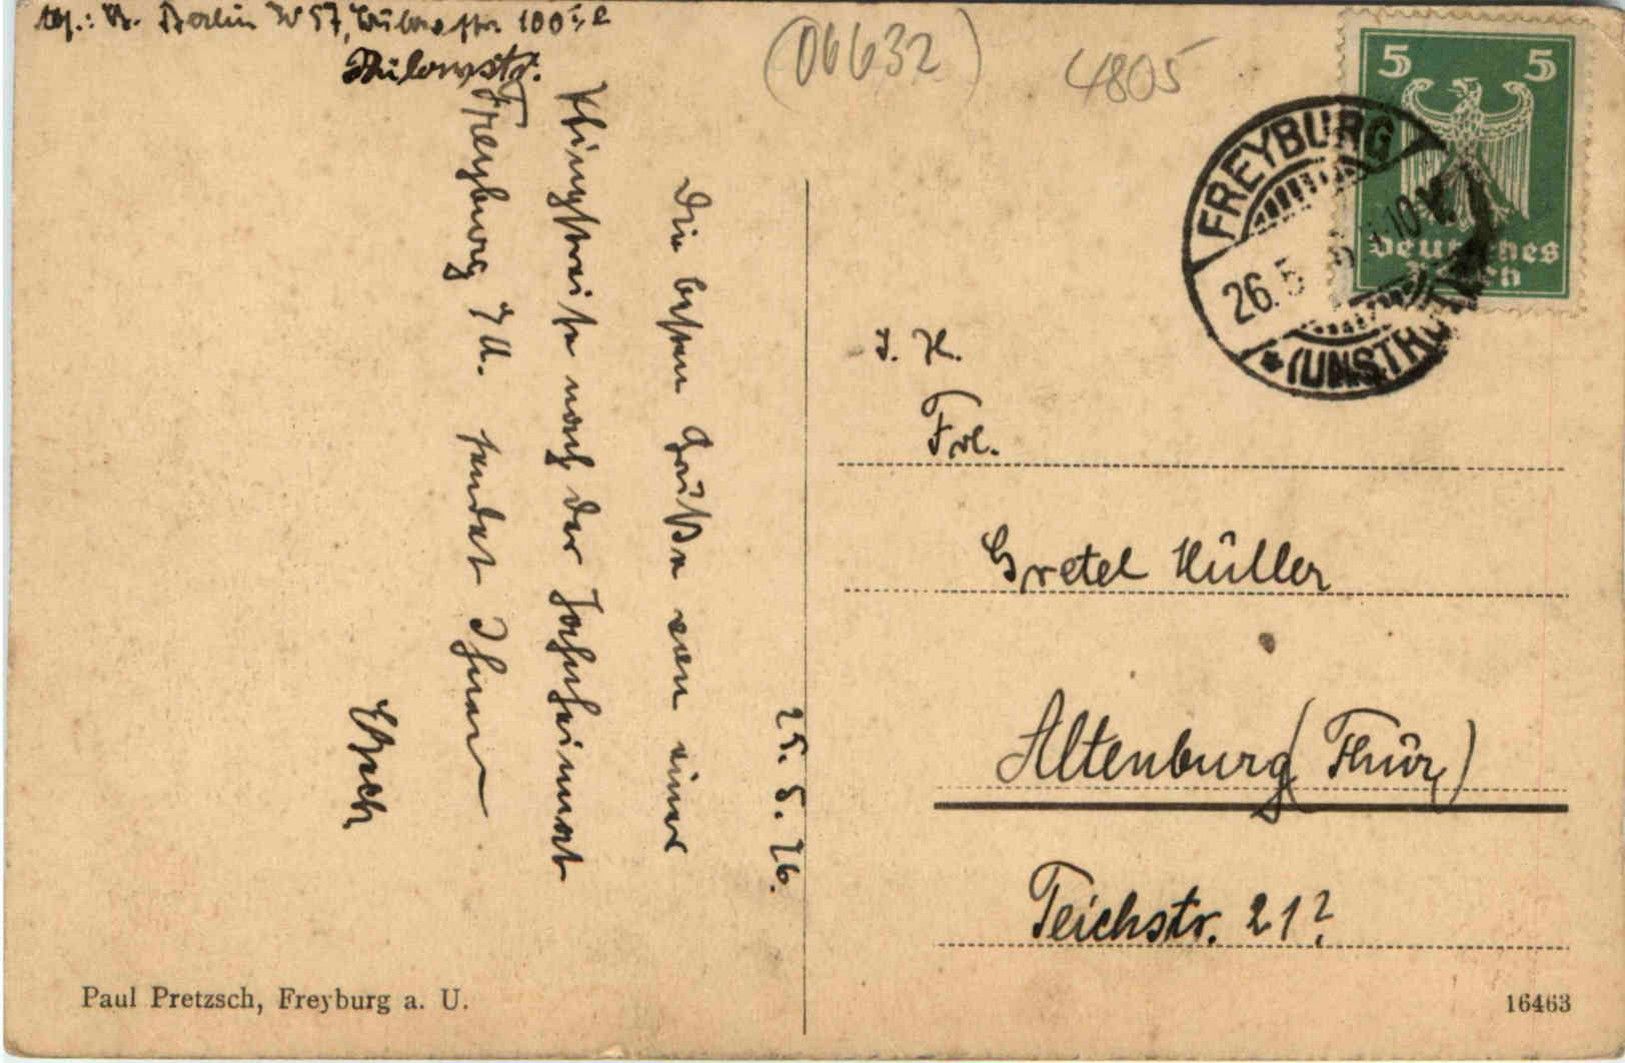 Berlin W 57, 100
Bülowstr.
(06632)
4805
5 5
Deutsches
Reich
FREYBURG
26.5
10 V.
* (UNSTRUT)
25. 5. 26.
Die besten Grüße von einer
Pfingstreise nach der Jahnheimat
Freyburg /U. sendet Ihnen
I. H.
Frl.
Gretel Müller
Altenburg (Thür.)
Teichstr. 21?
Paul Pretzsch, Freyburg a. U.
16463